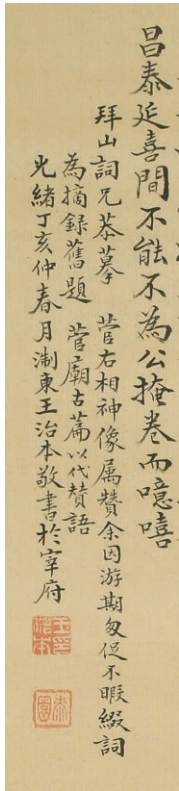 昌泰延喜間不能不為公掩卷而噫嘻
拜山詞兄恭摹　菅右相神像属贊余因游期匆促不暇綴詞
為摘録舊題　菅廟古篇以代贊語
光緒丁亥仲春月淛東王治本敬書於宰府
王印治本
泰園